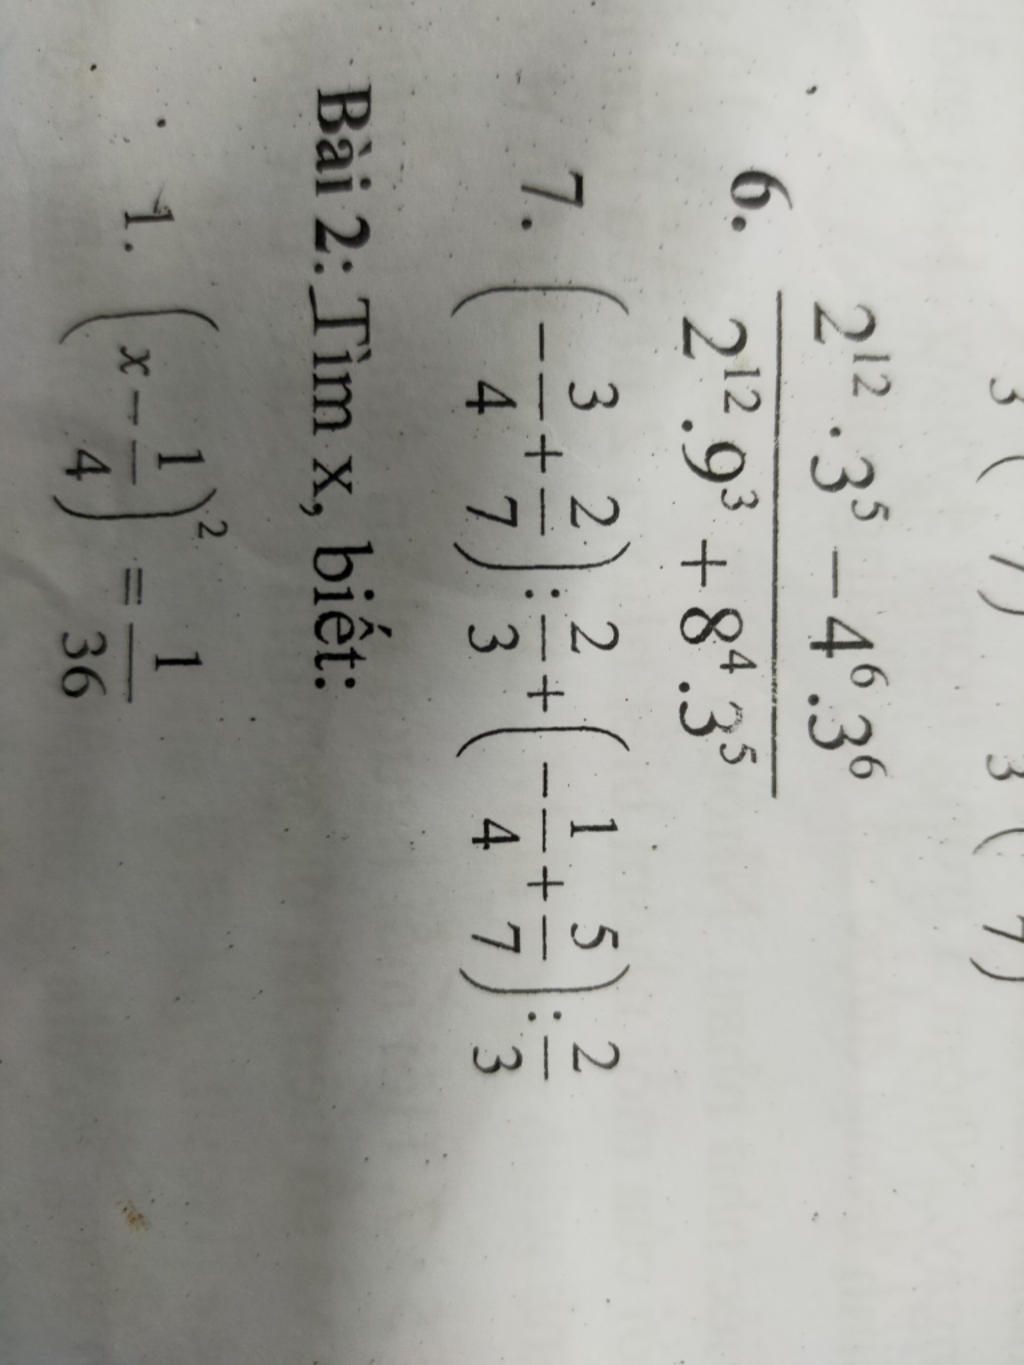 3 ( 7) 3 ( 7)
6. \frac{2^{12}.3^5 - 4^6.3^6}{2^{12}.9^3 + 8^4.3^5}
7. \left(-\frac{3}{4}+\frac{2}{7}\right):\frac{2}{3}+\left(-\frac{1}{4}+\frac{5}{7}\right):\frac{2}{3}
Bài 2: Tìm x, biết:
1. \left(x-\frac{1}{4}\right)^2=\frac{1}{36}